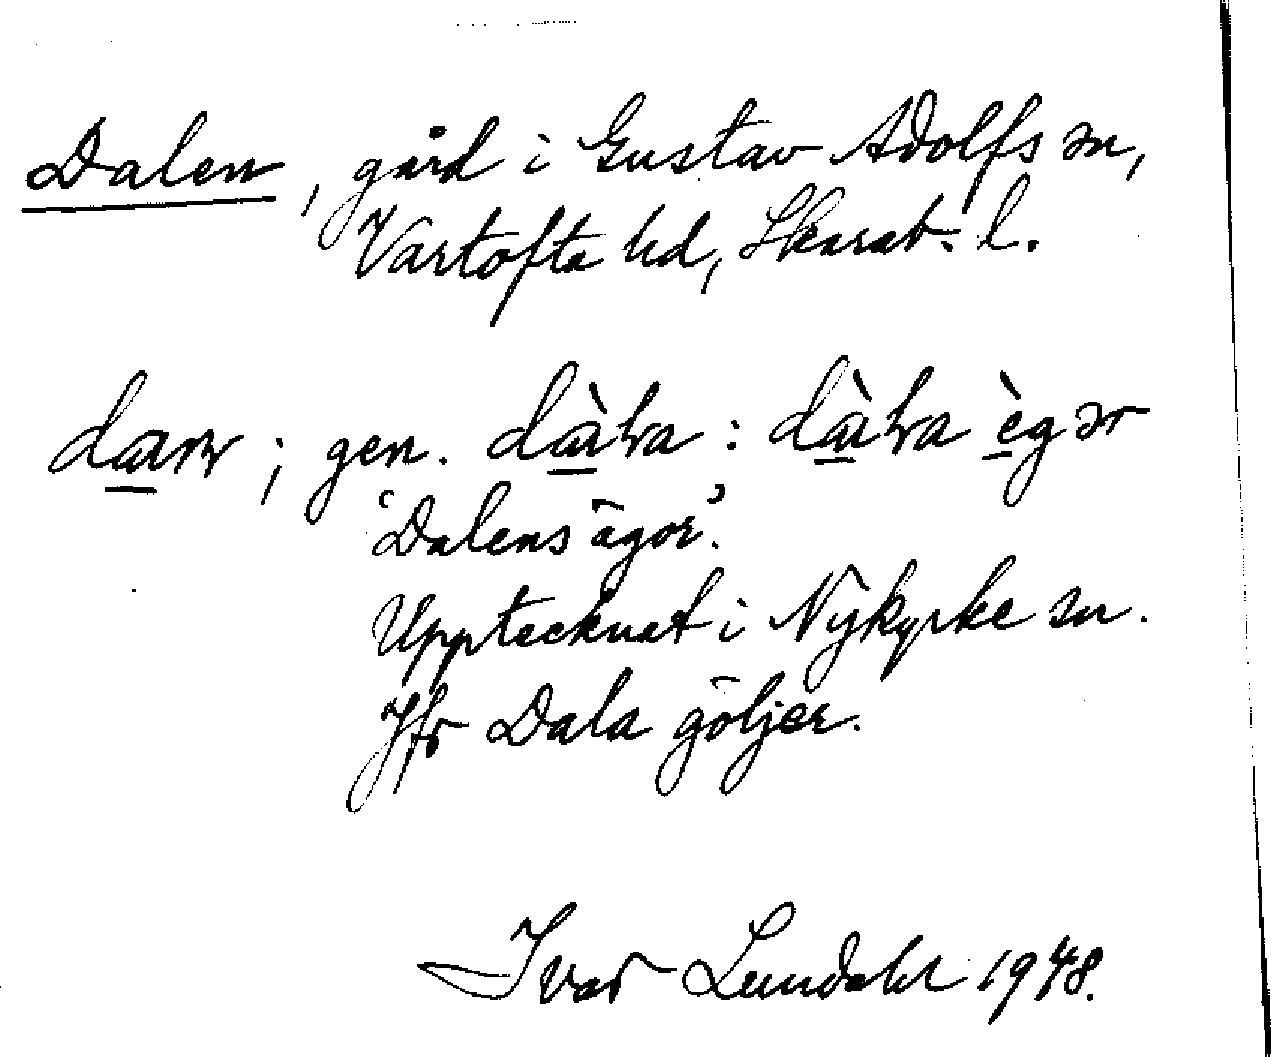 Dalen, gård i Gustav Adolfs sn,
Vartofta hd, Skarab. l.
; gen. : ègər
'Dalens ägor'.
Upptecknat i Nykyrke sn.
Jfr Dala göljer.
Ivar Lundahl 1948.